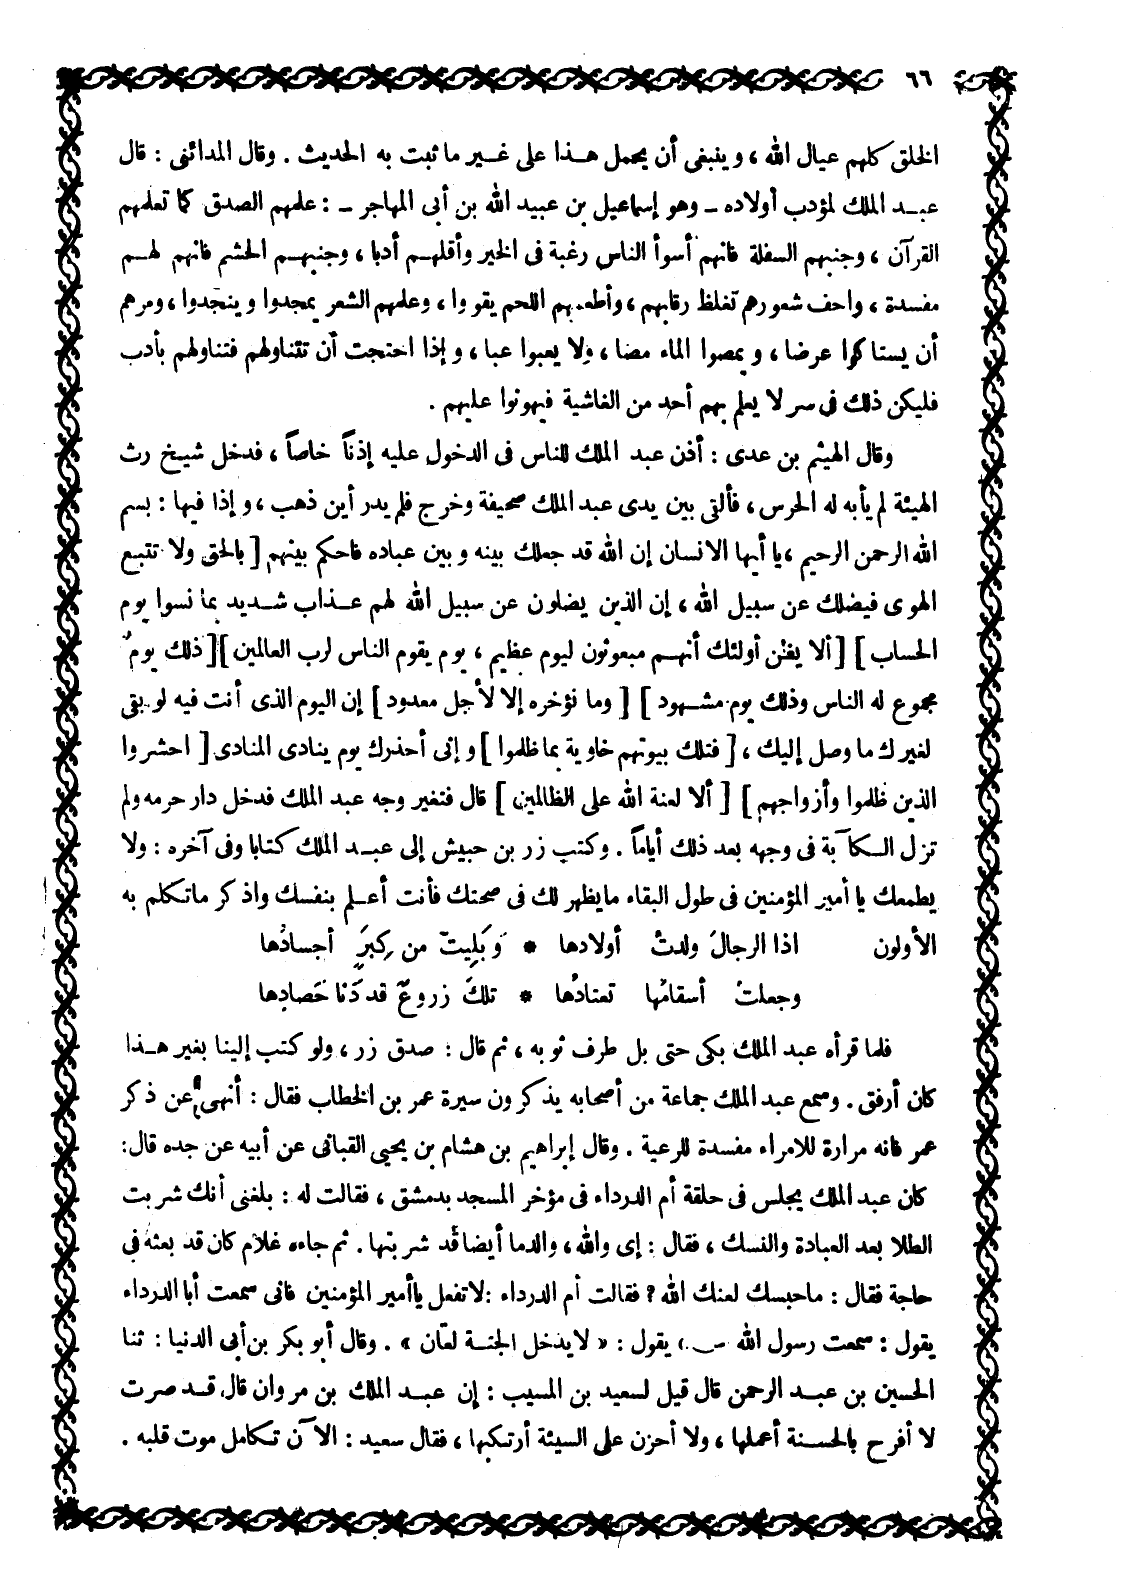 ٦٦
الخلق كلهم عيال الله ، وينبغى أن يحمل هـذا على غـير ما ثبت به الحديث . وقال المدائنى : قال
عبـد الملك لمؤدب أولاده ـ وهو إسماعيل بن عبيد الله بن أبى المهاجر ـ : علمهم الصدق كما تعلمهم
القرآن ، وجنبهم السفلة فانهم أسوأ الناس رغبة فى الخير وأقلهـم أدبا ، وجنبهـم الحشم فانهم لهـم
مفسدة ، واحف شعورهم تغلظ رقابهم ، وأطعمهم اللحم يقووا ، وعلمهم الشعر يمجدوا وينجدوا ، ومرهم
أن يستاكوا عرضا ، ويمصوا الماء مصا ، ولا يعبوا عبا ، وإذا احتجت أن تتناولهم فتناولهم بأدب
فليكن ذلك فى سر لا يعلم بهم أحد من الغاشية فيهونوا عليهم .
وقال الهيثم بن عدى : أذن عبد الملك للناس فى الدخول عليه إذناً خاصاً ، فدخل شيخ رث
الهيئة لم يأبه له الحرس ، فألقى بين يدى عبد الملك صحيفة وخرج فلم يدر أين ذهب ، وإذا فيها : بسم
الله الرحمن الرحيم ، يا أيها الانسان إن الله قد جعلك بينه وبين عباده فاحكم بينهم [ بالحق ولا تتبع
الهوى فيضلك عن سبيل الله ، إن الذين يضلون عن سبيل الله لهم عـذاب شـديد بما نسوا يوم
الحساب ] [ ألا يظن أولئك أنهـم مبعوثون ليوم عظيم ، يوم يقوم الناس لرب العالمين ][ ذلك يومٌ
مجموع له الناس وذلك يوم مشـهود ] [ وما نؤخره إلا لأجل معدود ] إن اليوم الذى أنت فيه لو بقى
لغيرك ما وصل إليك ، [ فتلك بيوتهم خاوية بما ظلموا ] وإنى أحذرك يوم ينادى المنادى [ احشروا
الذين ظلموا وأزواجهم ] [ ألا لعنة الله على الظالمين ] قال فتغير وجه عبد الملك فدخل دار حرمه ولم
تزل الـكآبة فى وجهه بعد ذلك أياماً . وكتب زر بن حبيش إلى عبـد الملك كتابا وفى آخره : ولا
يطمعك يا أمير المؤمنين فى طول البقاء ما يظهر لك فى صحتك فأنت أعـلم بنفسك واذكر ما تكلم به
الأولون اذا الرجالَ ولدتْ أولادها * وَبَلِيتْ من كِبَرٍ أجسادُها
وجعلتْ أسقامُها تعتادُها * تلكَ زروعٌ قد دَنا حَصادها
فلما قرأه عبد الملك بكى حتى بل طرف ثوبه ، ثم قال : صدق زر ، ولو كتب إلينا بغير هـذا
كان أرفق . وسمع عبد الملك جماعة من أصحابه يذكرون سيرة عمر بن الخطاب فقال : أنهى عن ذكر
عمر فانه مرارة للامراء مفسدة للرعية . وقال إبراهيم بن هشام بن يحيى القبانى عن أبيه عن جده قال :
كان عبد الملك يجلس فى حلقة أم الدرداء فى مؤخر المسجد بدمشق ، فقالت له : بلغنى أنك شربت
الطلا بعد العبادة والنسك ، فقال : إى والله ، والدما أيضا قد شربتها . ثم جاءه غلام كان قد بعثه فى
حاجة فقال : ما حبسك لعنك الله ؟ فقالت أم الدرداء : لا تفعل يا أمير المؤمنين فانى سمعت أبا الدرداء
يقول : سمعت رسول الله ﺳ ، يقول : « لا يدخل الجنـة لعّان » . وقال أبو بكر بن أبى الدنيا : ثنا
الحسين بن عبـد الرحمن قال قيل لسعيد بن المسيب : إن عبـد الملك بن مروان قال قـد صرت
لا أفرح بالحسـنة أعملها ، ولا أحزن على السيئة أرتكبها ، فقال سعيد : الآن تكامل موت قلبه .